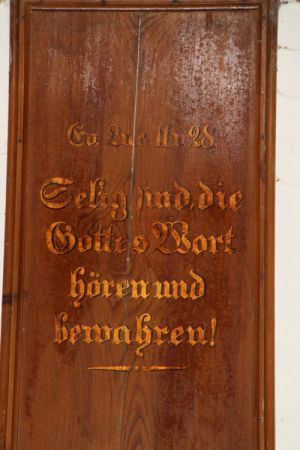 Ev. Luc. 11 v. 28.
Selig sind, die
Gottes Wort
hören und
bewahren!